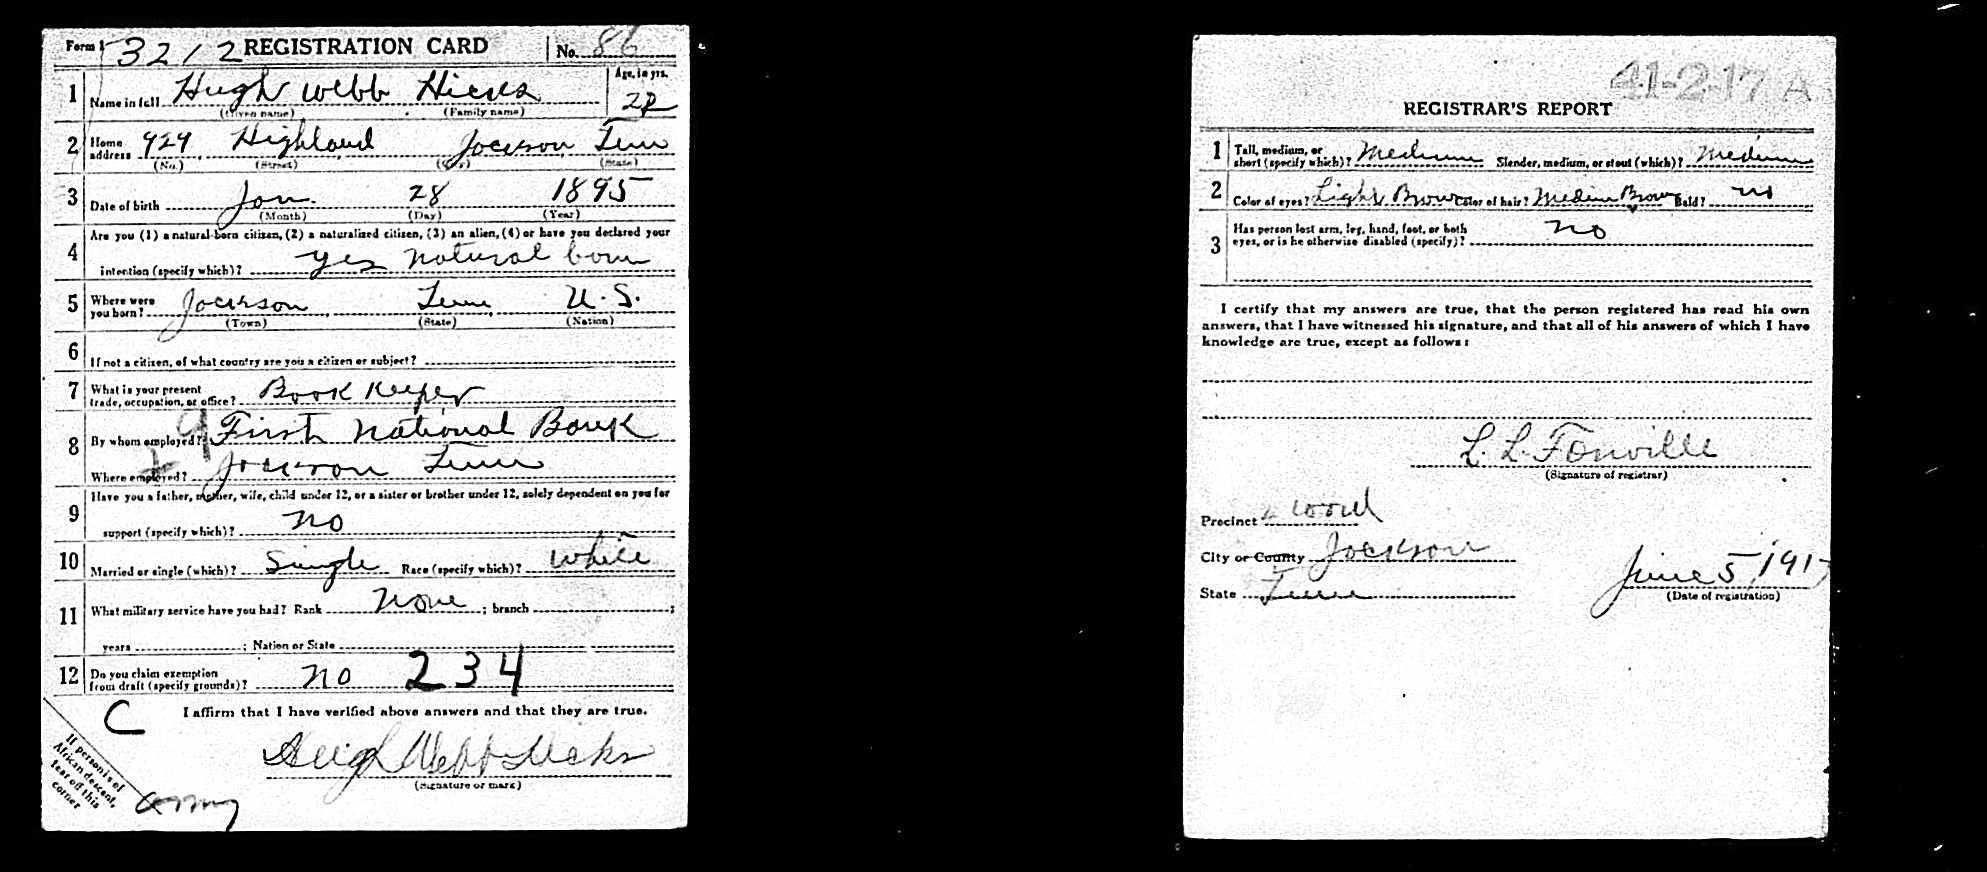 Form 1 3212 REGISTRATION CARD No. 86
1 Name in full Hugh Webb Hicks Age, in yrs. 22
(Given name) (Family name)
2 Home address 929 Highland Jackson Tenn
(No.) (Street) (City) (State)
3 Date of birth Jan. 28 1895
(Month) (Day) (Year)
4 Are you (1) a natural-born citizen, (2) a naturalized citizen, (3) an alien, (4) or have you declared your
intention (specify which)? yes natural born
5 Where were you born? Jackson Tenn U.S.
(Town) (State) (Nation)
6 If not a citizen, of what country are you a citizen or subject?
7 What is your present trade, occupation, or office? Book Keeper
8 By whom employed? First National Bank
Where employed? Jackson Tenn
9 Have you a father, mother, wife, child under 12, or a sister or brother under 12, solely dependent on you for
support (specify which)? no
10 Married or single (which)? Single Race (specify which)? White
11 What military service have you had? Rank None ; branch ;
years ; Nation or State
12 Do you claim exemption from draft (specify grounds)? no 234
C I affirm that I have verified above answers and that they are true.
Hugh Webb Hicks
(Signature or mark)
If person is of
African descent,
tear off this
corner
army
41-2-17 A
REGISTRAR'S REPORT
1 Tall, medium, or short (specify which)? Medium Slender, medium, or stout (which)? Medium
2 Color of eyes? Light Brown Color of hair? Medium Brown Bald? no
3 Has person lost arm, leg, hand, foot, or both
eyes, or is he otherwise disabled (specify)? no
I certify that my answers are true, that the person registered has read his own
answers, that I have witnessed his signature, and that all of his answers of which I have
knowledge are true, except as follows:
L. L. Fonville
(Signature of registrar)
Precinct ward
City or County Jackson
State Tenn
June 5, 1917
(Date of registration)